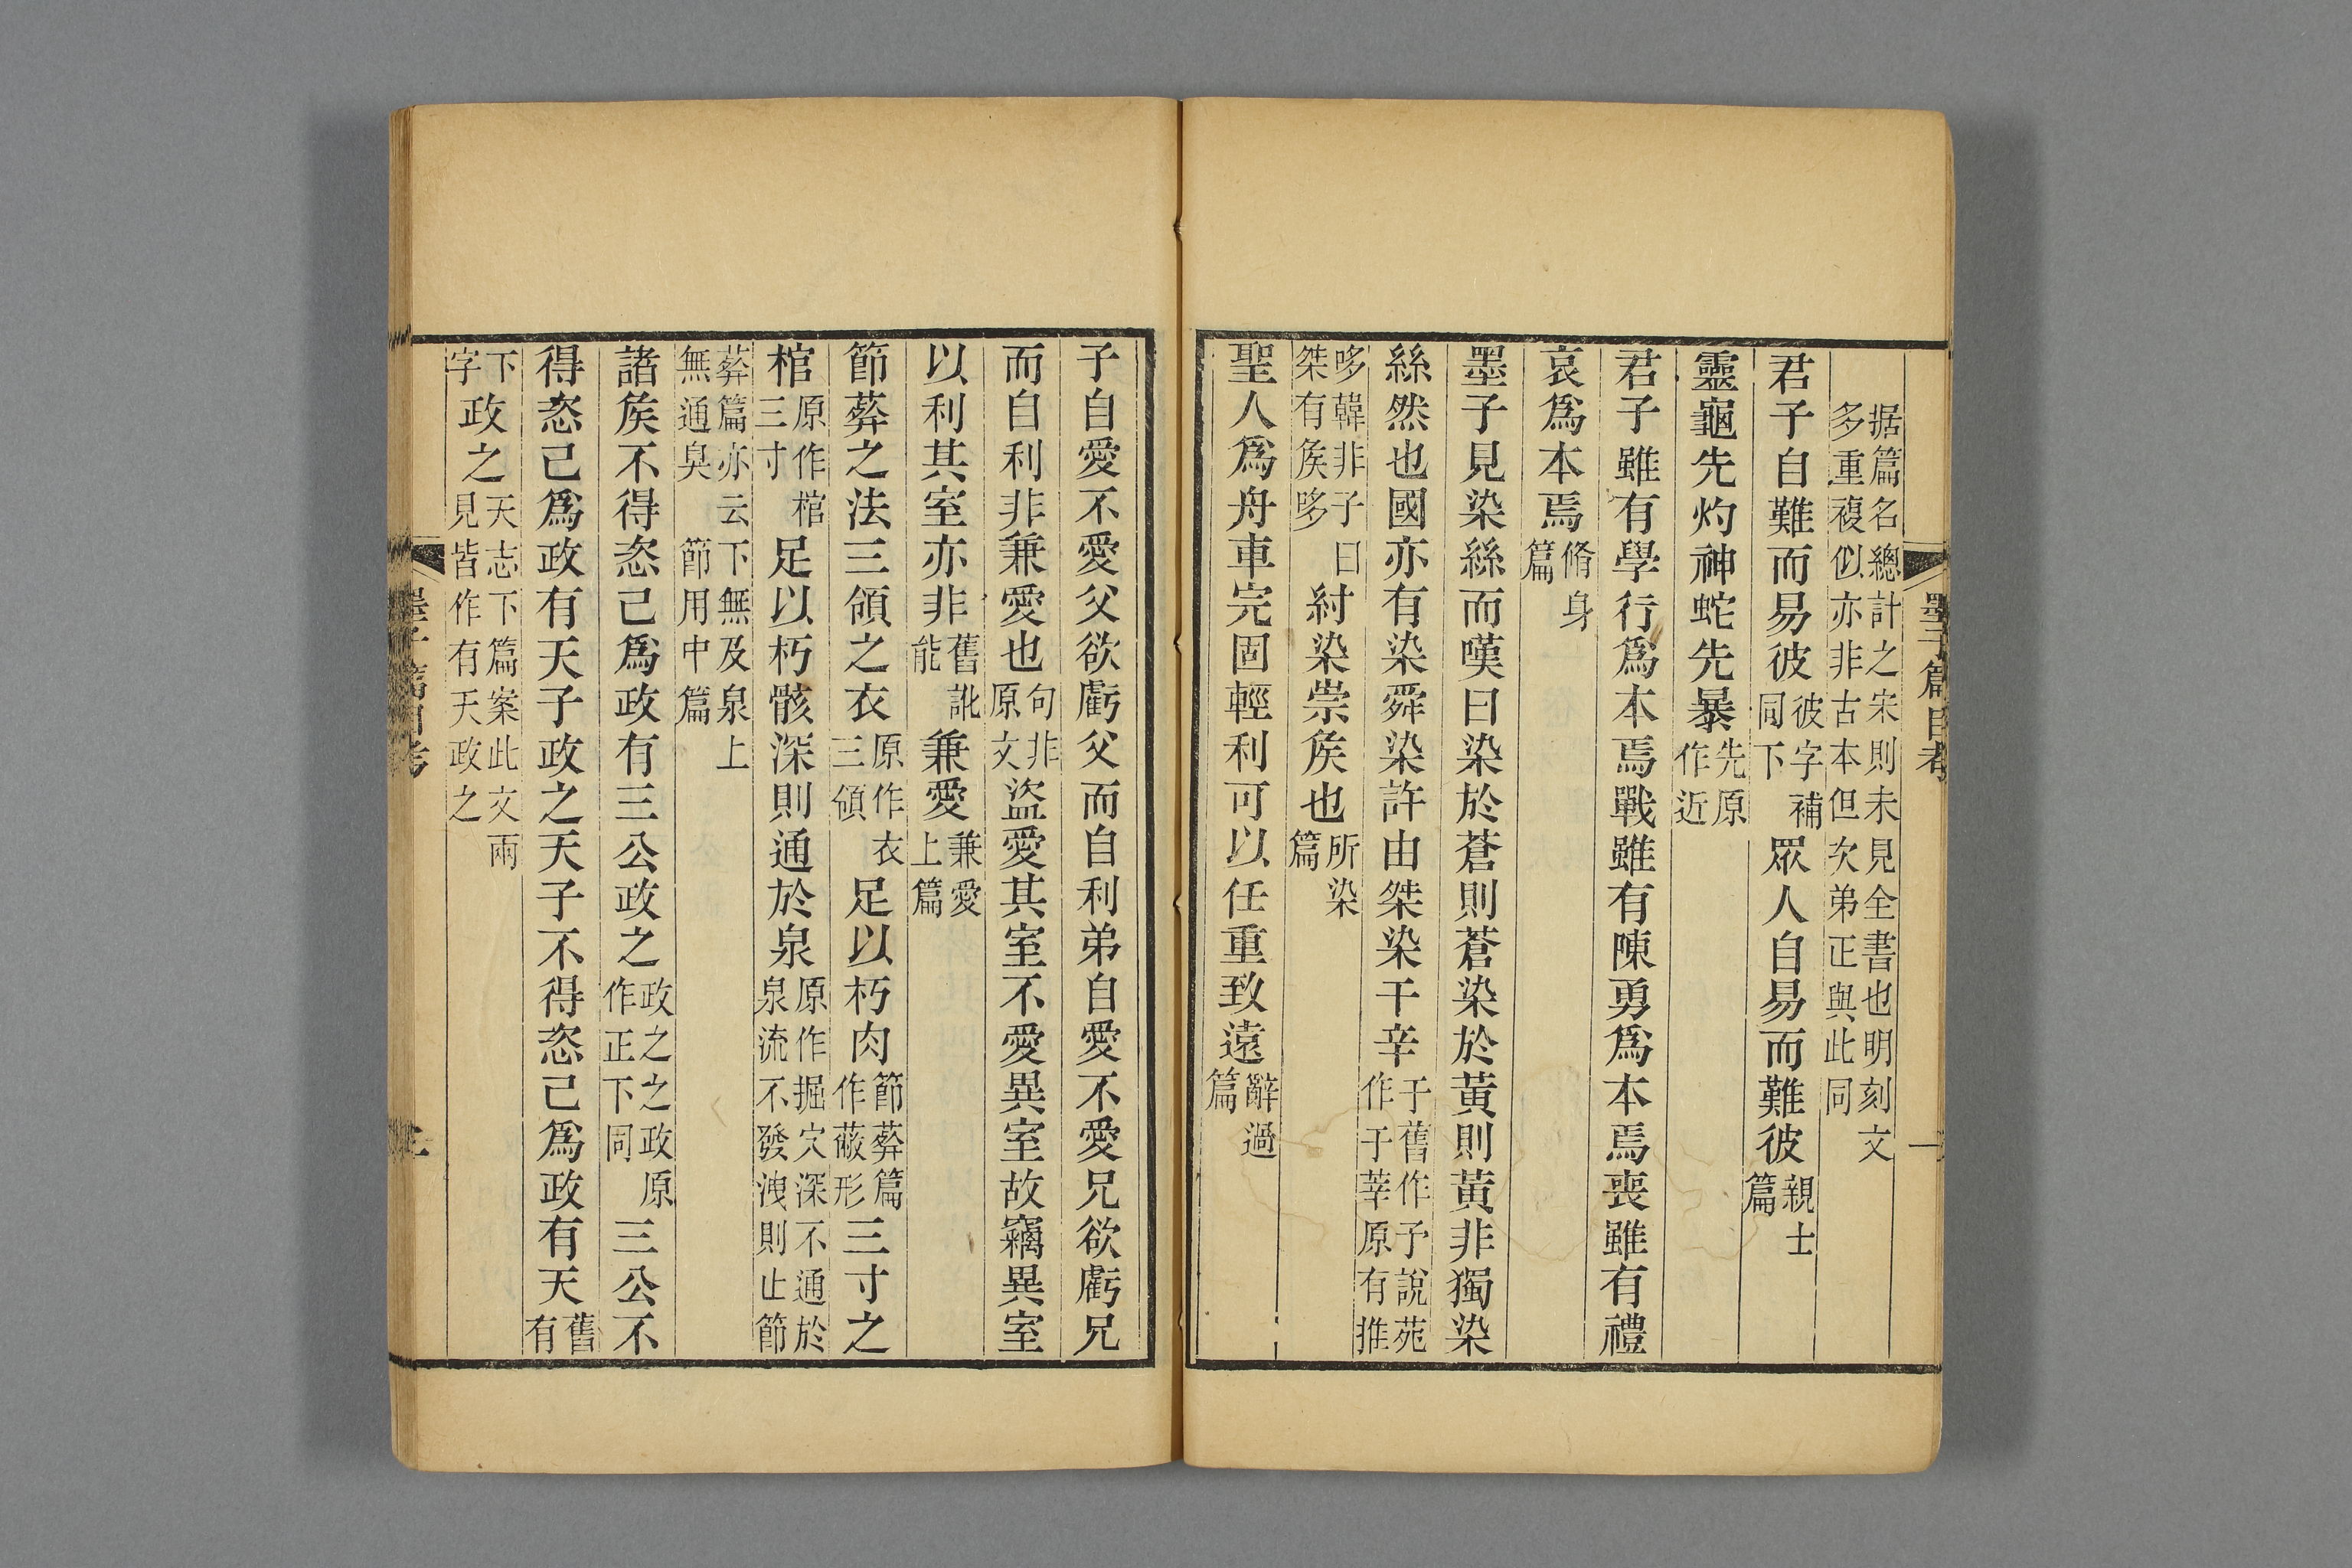 墨子篇目考
一
据篇名總計之宋則未見全書也明刻文
多重複似亦非古本但次弟正與此同
君子自難而易彼彼字補同下眾人自易而難彼親士篇
靈龜先灼神蛇先暴先原作近
君子雖有學行爲本焉戰雖有陳勇爲本焉喪雖有禮
哀爲本焉脩身篇
墨子見染絲而嘆曰染於蒼則蒼染於黃則黃非獨染
絲然也國亦有染舜染許由桀染干辛干舊作予說苑作于莘原有推
哆韓非子曰桀有矦哆紂染崇矦也所染篇
聖人爲舟車完固輕利可以任重致遠辭過篇
子自愛不愛父欲虧父而自利弟自愛不愛兄欲虧兄
而自利非兼愛也句非原文盜愛其室不愛異室故竊異室
以利其室亦非舊訛能兼愛兼愛上篇
節葬之法三領之衣原作衣三領足以朽肉節葬篇作蔽形三寸之
棺原作棺三寸足以朽骸深則通於泉原作掘穴深不通於泉流不發洩則止節
葬篇亦云無通臭下無及泉上節用中篇
諸矦不得恣己爲政有三公政之政之之政原作正下同三公不
得恣己爲政有天子政之天子不得恣己爲政有天舊有
下字政之天志下篇案此文兩見皆作有天政之
墨子篇目考